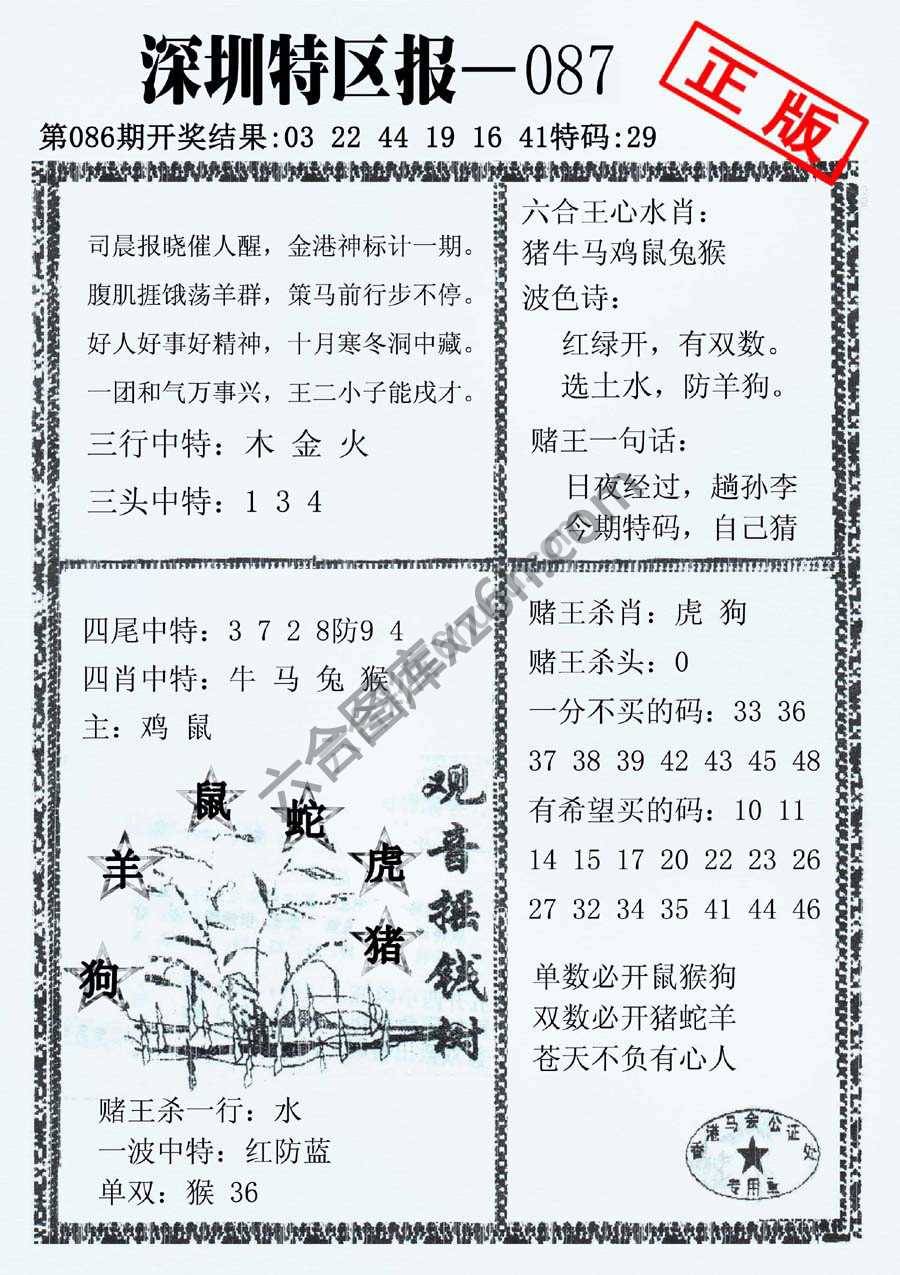 深圳特区报—087
正版
第086期开奖结果:03 22 44 19 16 41特码:29
司晨报晓催人醒，金港神标计一期。
腹肌捱饿荡羊群，策马前行步不停。
好人好事好精神，十月寒冬洞中藏。
一团和气万事兴，王二小子能戌才。
三行中特：木 金 火
三头中特：1 3 4
六合王心水肖：
猪牛马鸡鼠兔猴
波色诗：
红绿开，有双数。
选土水，防羊狗。
赌王一句话：
日夜经过，趟孙李
今期特码，自己猜
四尾中特：3 7 2 8防9 4
四肖中特：牛 马 兔 猴
主：鸡 鼠
鼠
蛇
羊
虎
猪
狗
观音摇钱树
赌王杀一行：水
一波中特：红防蓝
单双：猴 36
赌王杀肖：虎 狗
赌王杀头：0
一分不买的码：33 36
37 38 39 42 43 45 48
有希望买的码：10 11
14 15 17 20 22 23 26
27 32 34 35 41 44 46
单数必开鼠猴狗
双数必开猪蛇羊
苍天不负有心人
香港马会公证处
专用章
六合图库xz6h.com